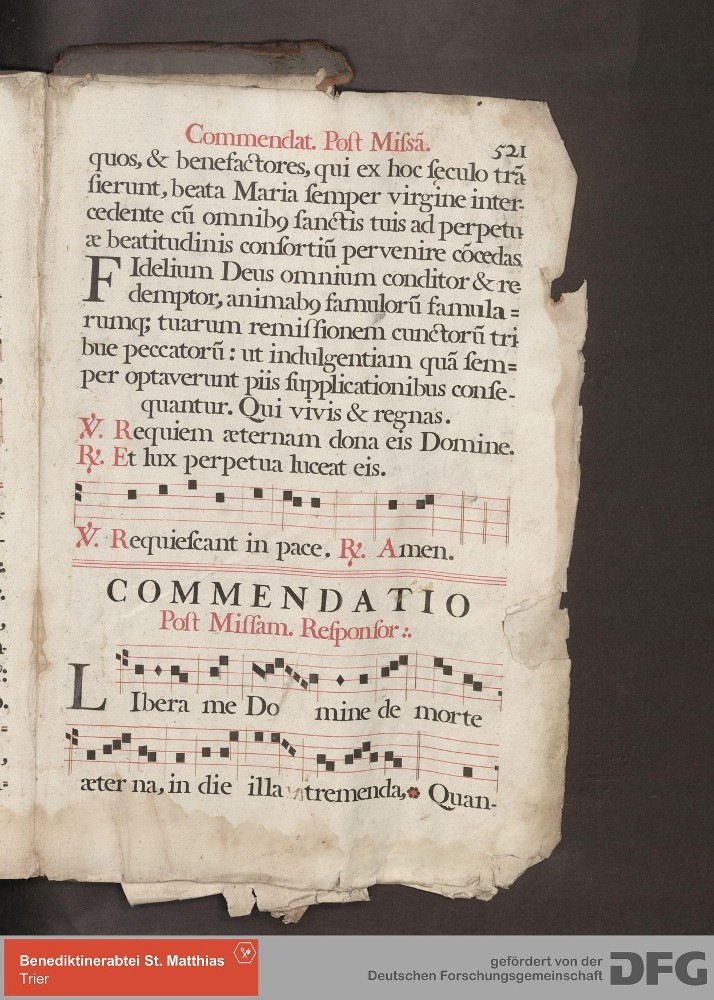 Commendat. Poſt Miſsã.
521
quos, & benefactores, qui ex hoc ſęculo trã
ſierunt, beata Maria ſemper virgine inter-
cedente cũ omnibꝯ ſanctis tuis ad perpetu
æ beatitudinis conſortiũ pervenire cõcedas.
FIdelium Deus omnium conditor & re
demptor, animabꝯ famulorũ famula=
rumq; tuarum remiſſionem cunctorũ tri
bue peccatorũ: ut indulgentiam quã ſem=
per optaverunt piis ſupplicationibus conſe-
quantur. Qui vivis & regnas.
℣. Requiem æternam dona eis Domine.
℟. Et lux perpetua luceat eis.
℣. Requieſcant in pace. ℟. Amen.
COMMENDATIO
Poſt Miſſam. Reſponſor:.
LIbera me Do mine de morte
æter na, in die illa tremenda, Quan-
Benediktinerabtei St. Matthias
Trier
gefördert von der
Deutschen Forschungsgemeinschaft
DFG